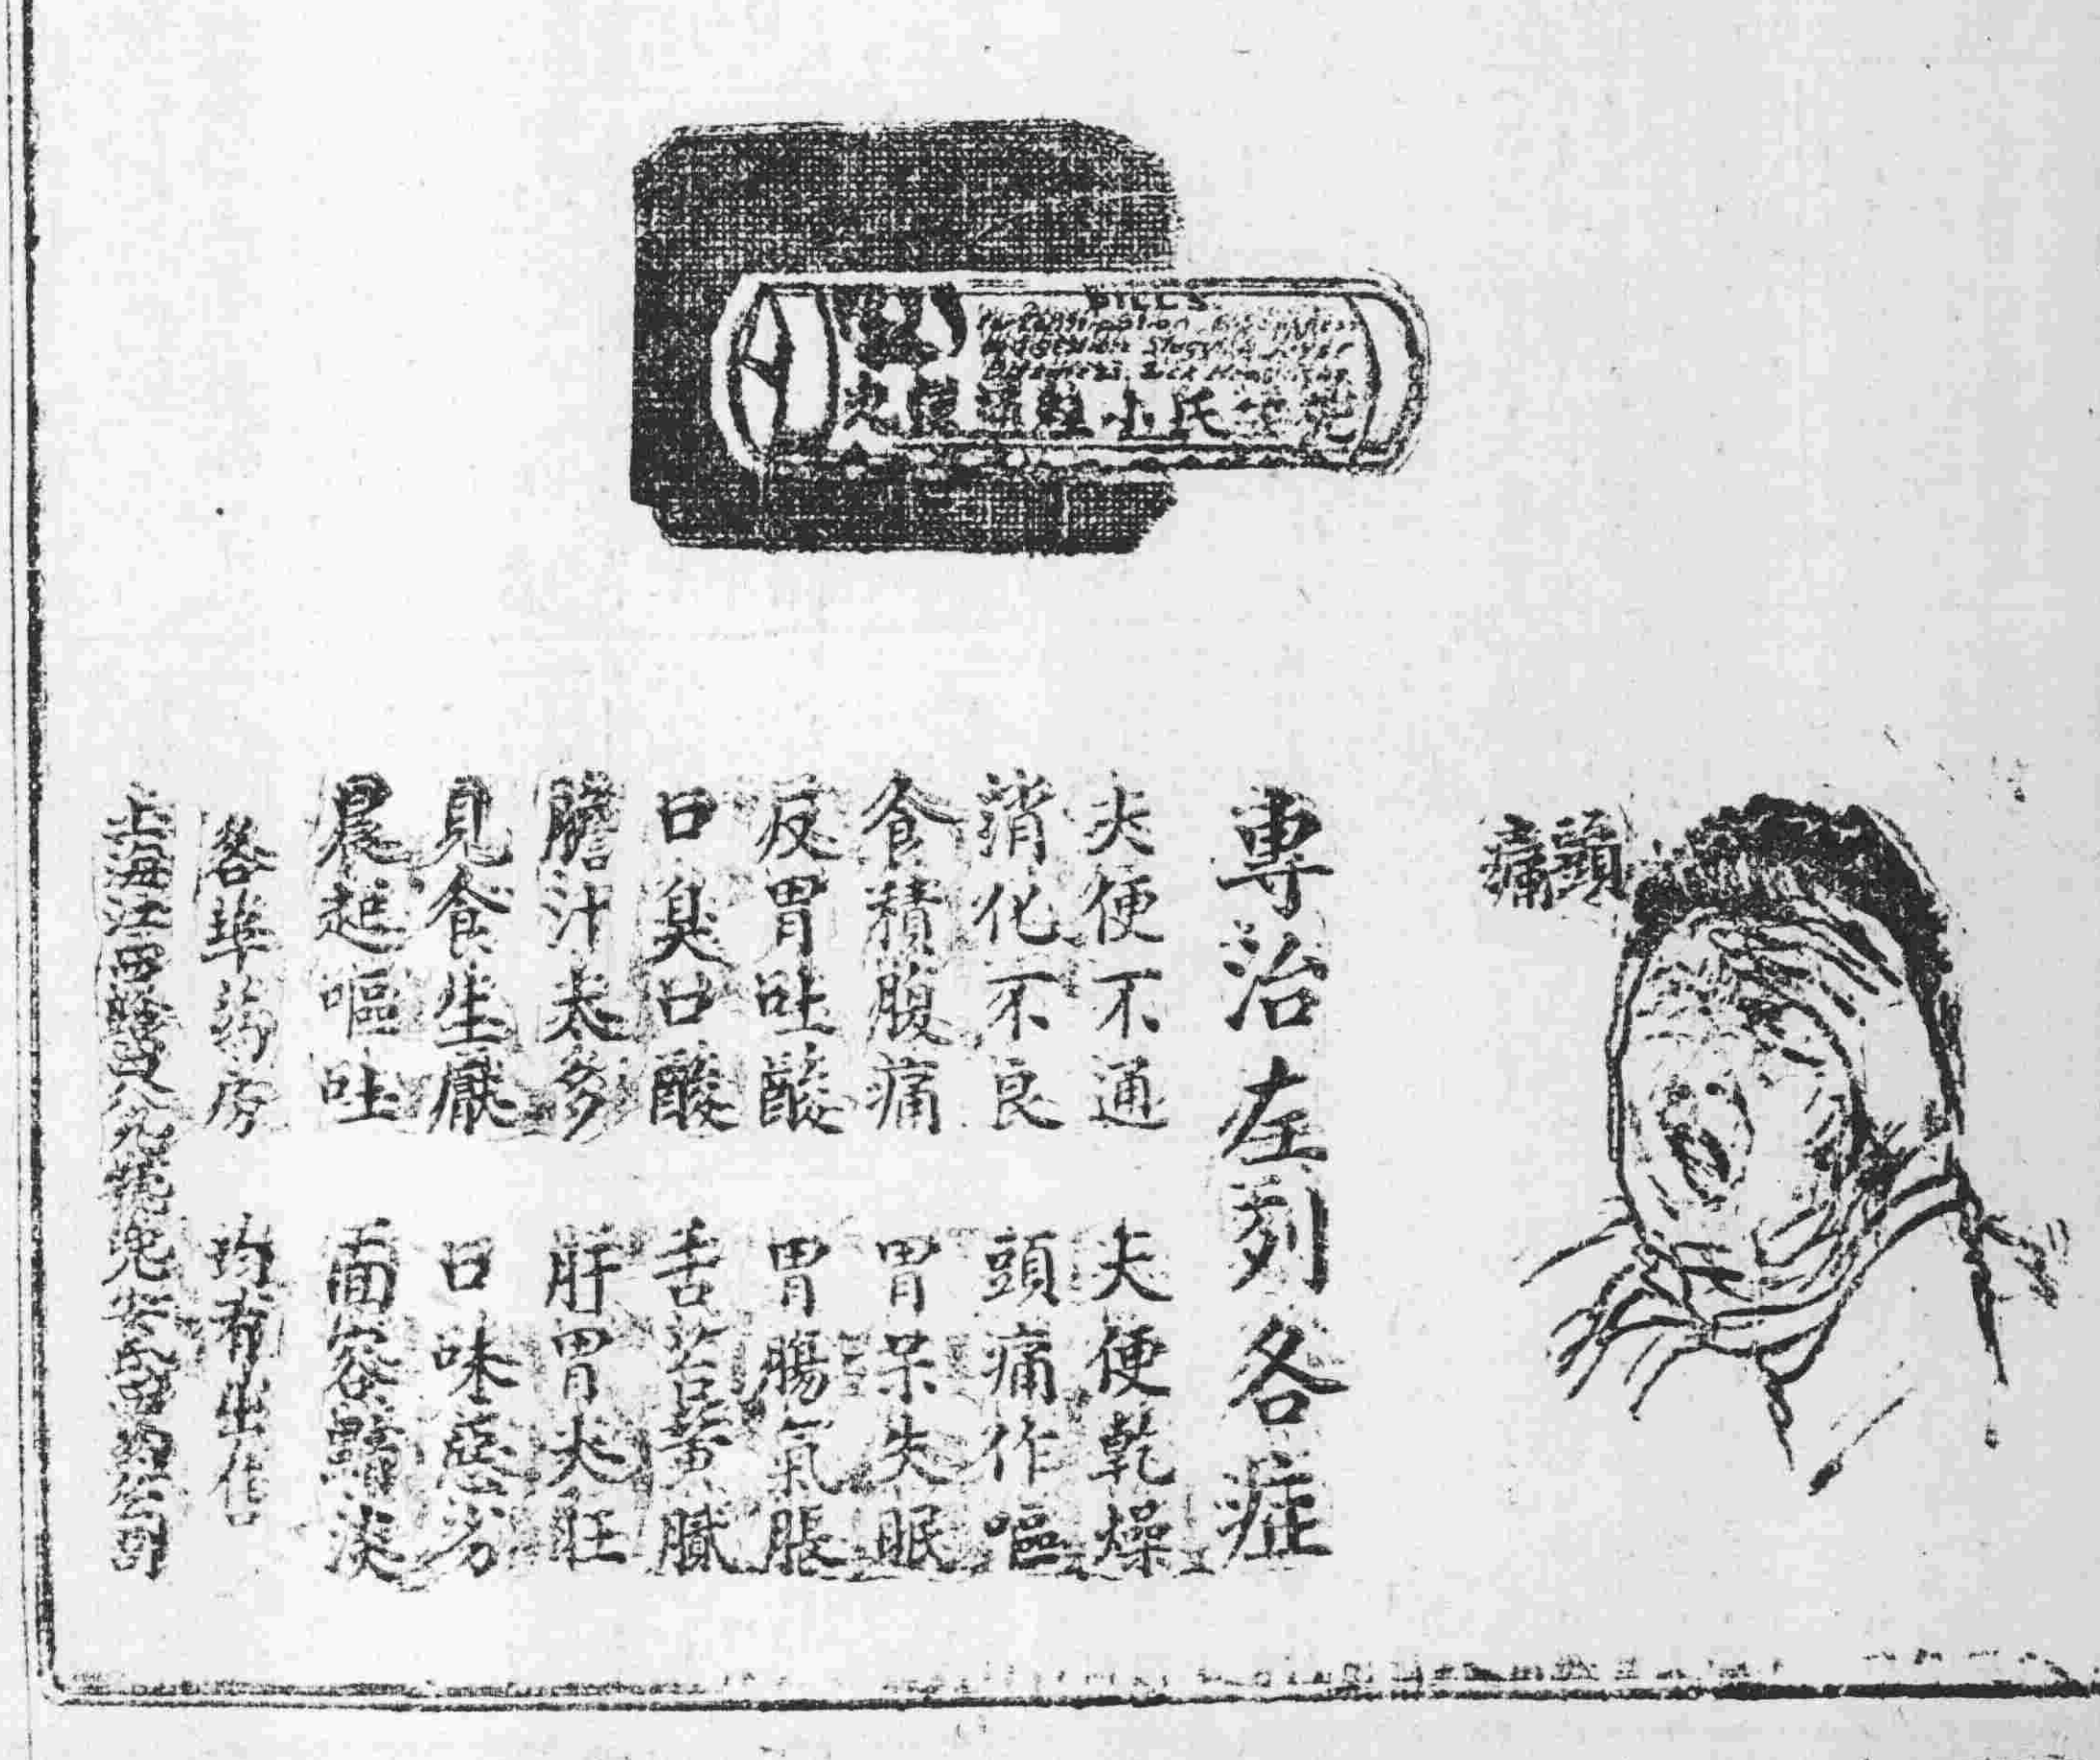 PILLS
頭痛
專治左列各症
大便不通 大便乾燥
消化不良 頭痛作嘔
食積腹痛 胃呆失眠
反胃吐酸 胃腸氣脹
口臭口酸 舌苔黃膩
膽汁太多 肝胃火旺
見食生厭 口味惡劣
晨起嘔吐 面容黯淡
各華药房 均有出售
上海江西路 公司